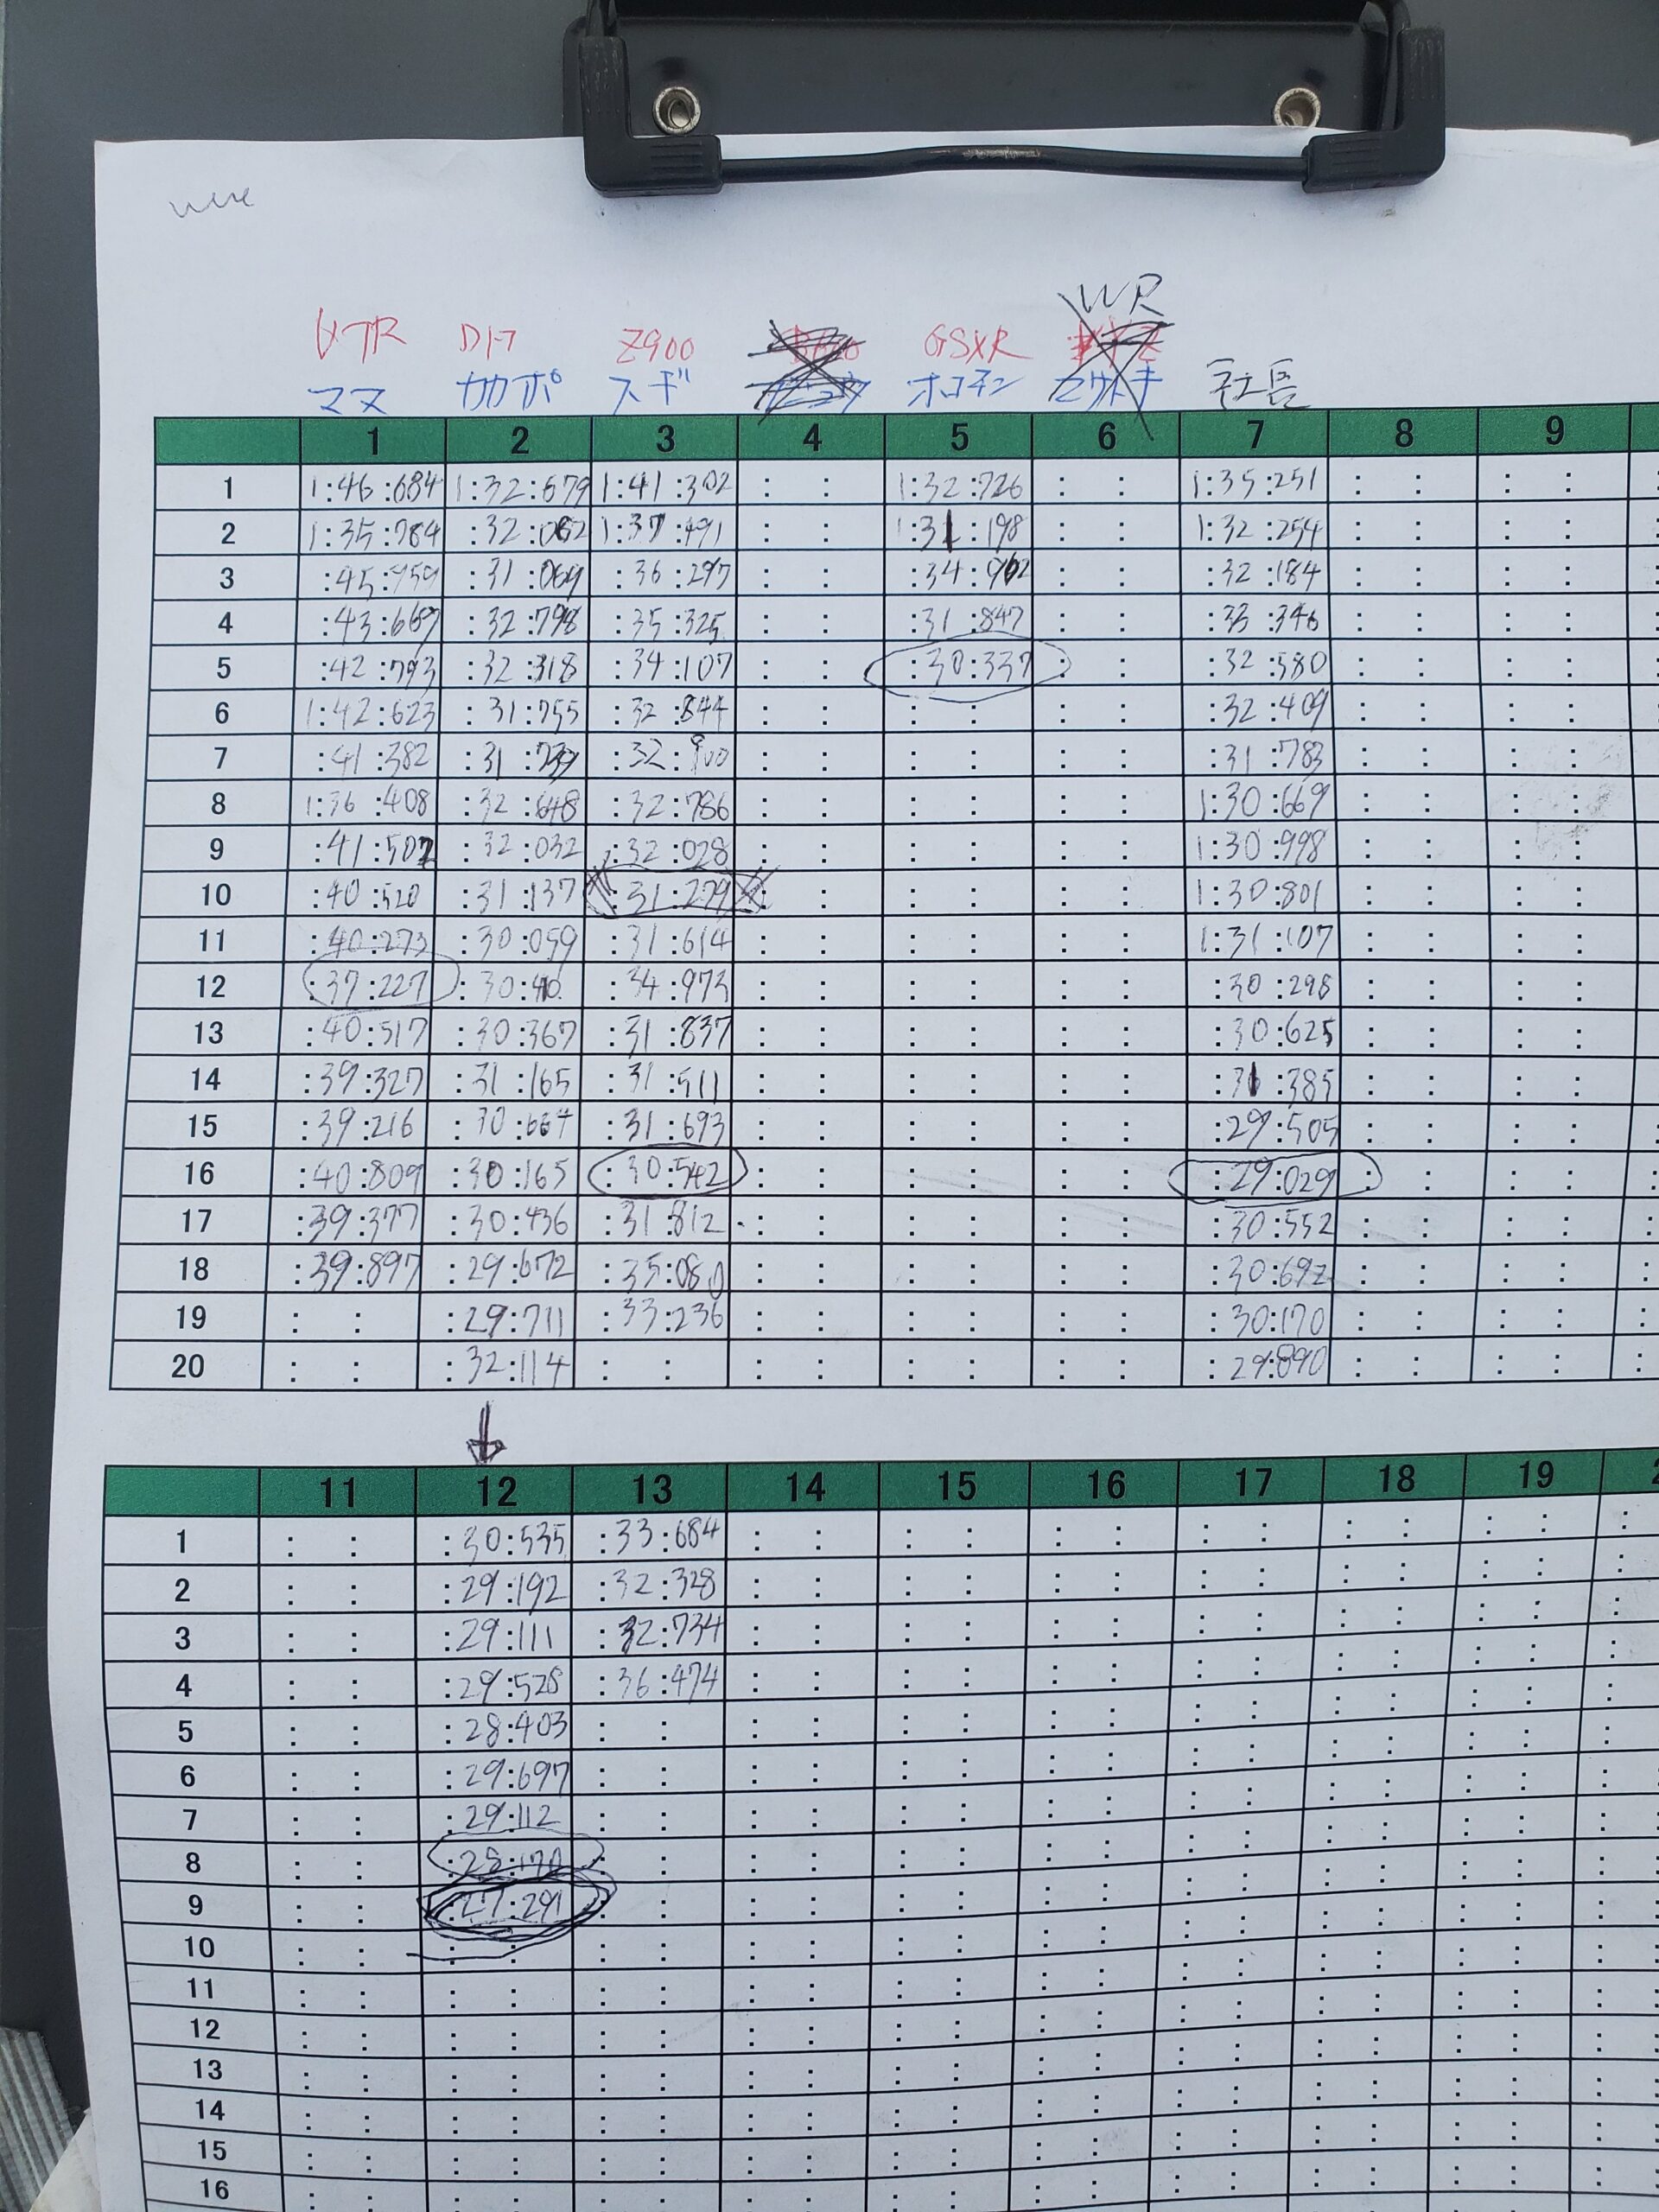 WR
VTR D17 Z900 GSXR
ママ カカポ スギ オコチン 社長
1 2 3 4 5 6 7 8 9
1 1:46:684 1:32:679 1:41:302 : : 1:32:726 : : 1:35:251 : : : :
2 1:35:784 :32:062 1:37:491 : : 1:31:198 : : 1:32:254 : : : :
3 :45:759 :31:069 :36:297 : : :34:902 : : :32:184 : : : :
4 :43:667 :32:798 :35:325 : : :31:847 : : :33:346 : : : :
5 :42:793 :32:318 :34:107 : : :30:337 : : :32:580 : : : :
6 1:42:623 :31:755 :32:844 : : : : : : :32:409 : : : :
7 :41:382 :31:739 :32:900 : : : : : : :31:783 : : : :
8 1:36:408 :32:648 :32:786 : : : : : : 1:30:669 : : : :
9 :41:502 :32:032 :32:028 : : : : : : 1:30:998 : : : :
10 :40:520 :31:137 :31:279 : : : : : : 1:30:801 : : : :
11 :40:273 :30:059 :31:614 : : : : : : 1:31:107 : : : :
12 :37:227 :30:410 :34:973 : : : : : : :30:298 : : : :
13 :40:517 :30:367 :31:837 : : : : : : :30:625 : : : :
14 :39:327 :31:165 :31:511 : : : : : : :31:385 : : : :
15 :39:216 :30:664 :31:693 : : : : : : :29:505 : : : :
16 :40:809 :30:165 :30:542 : : : : : : :29:029 : : : :
17 :39:377 :30:436 :31:812 : : : : : : :30:552 : : : :
18 :39:897 :29:672 :35:080 : : : : : : :30:692 : : : :
19 : : :29:711 :33:236 : : : : : : :30:170 : : : :
20 : : :32:114 : : : : : : : : :29:890 : : : :
↓
11 12 13 14 15 16 17 18 19 2
1 : : :30:535 :33:684 : : : : : : : : : : : :
2 : : :29:192 :32:328 : : : : : : : : : : : :
3 : : :29:111 :32:734 : : : : : : : : : : : :
4 : : :29:528 :36:474 : : : : : : : : : : : :
5 : : :28:403 : : : : : : : : : : : : : :
6 : : :29:697 : : : : : : : : : : : : : :
7 : : :29:112 : : : : : : : : : : : : : :
8 : : :28:170 : : : : : : : : : : : : : :
9 : : :27:291 : : : : : : : : : : : : : :
10 : : : : : : : : : : : : : : : : : :
11 : : : : : : : : : : : : : : : : : :
12 : : : : : : : : : : : : : : : : : :
13 : : : : : : : : : : : : : : : : : :
14 : : : : : : : : : : : : : : : : : :
15 : : : : : : : : : : : : : : : : : :
16 : : : : : : : : : : : : : : : : : :